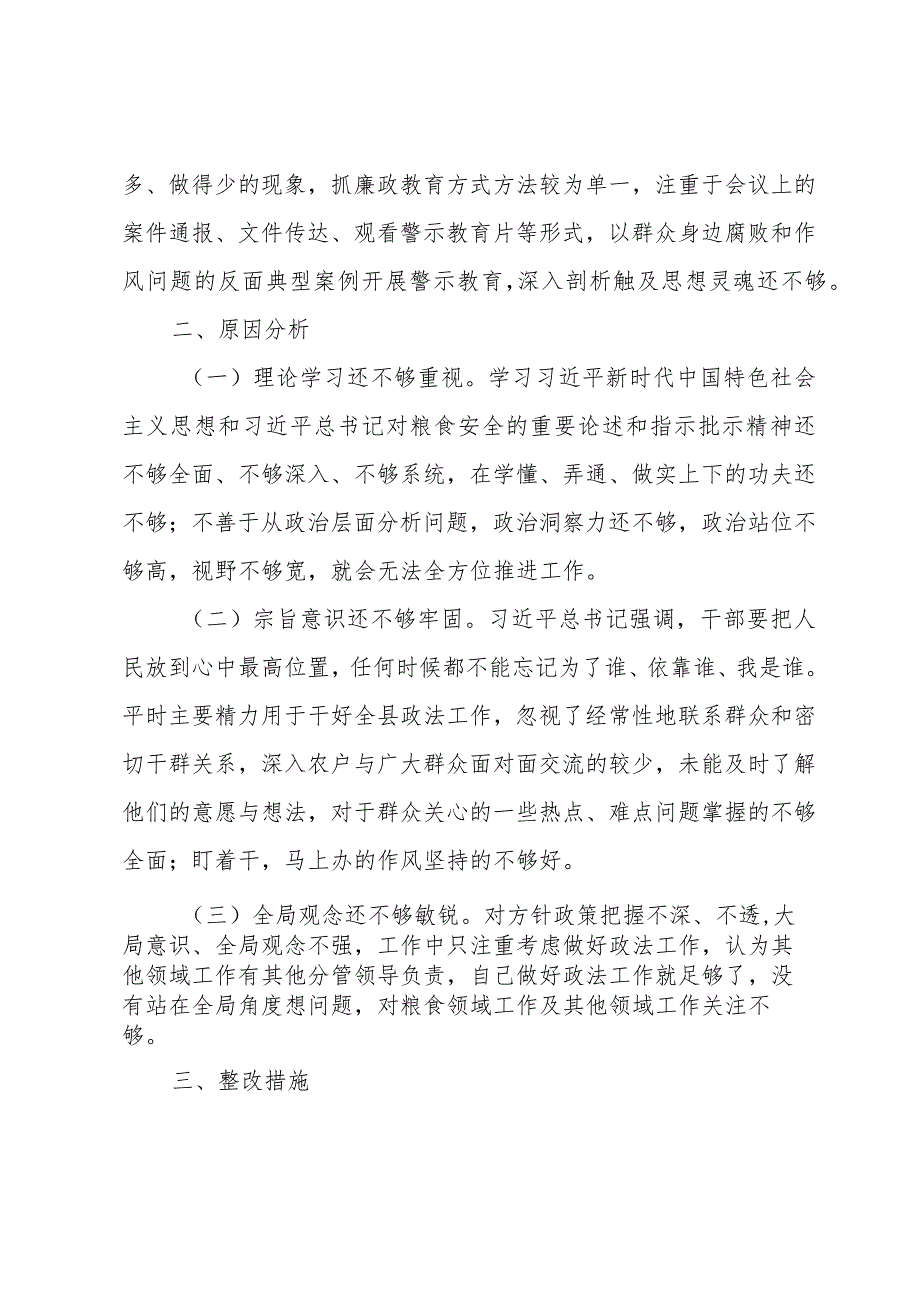 多、做得少的现象，抓廉政教育方式方法较为单一，注重于会议上的
案件通报、文件传达、观看警示教育片等形式，以群众身边腐败和作
风问题的反面典型案例开展警示教育,深入剖析触及思想灵魂还不够。
二、原因分析
（一）理论学习还不够重视。学习习近平新时代中国特色社会
主义思想和习近平总书记对粮食安全的重要论述和指示批示精神还
不够全面、不够深入、不够系统，在学懂、弄通、做实上下的功夫还
不够；不善于从政治层面分析问题，政治洞察力还不够，政治站位不
够高，视野不够宽，就会无法全方位推进工作。
（二）宗旨意识还不够牢固。习近平总书记强调，干部要把人
民放到心中最高位置，任何时候都不能忘记为了谁、依靠谁、我是谁。
平时主要精力用于干好全县政法工作，忽视了经常性地联系群众和密
切干群关系，深入农户与广大群众面对面交流的较少，未能及时了解
他们的意愿与想法，对于群众关心的一些热点、难点问题掌握的不够
全面；盯着干，马上办的作风坚持的不够好。
（三）全局观念还不够敏锐。对方针政策把握不深、不透,大
局意识、全局观念不强，工作中只注重考虑做好政法工作，认为其
他领域工作有其他分管领导负责，自己做好政法工作就足够了，没
有站在全局角度想问题，对粮食领域工作及其他领域工作关注不
够。
三、整改措施